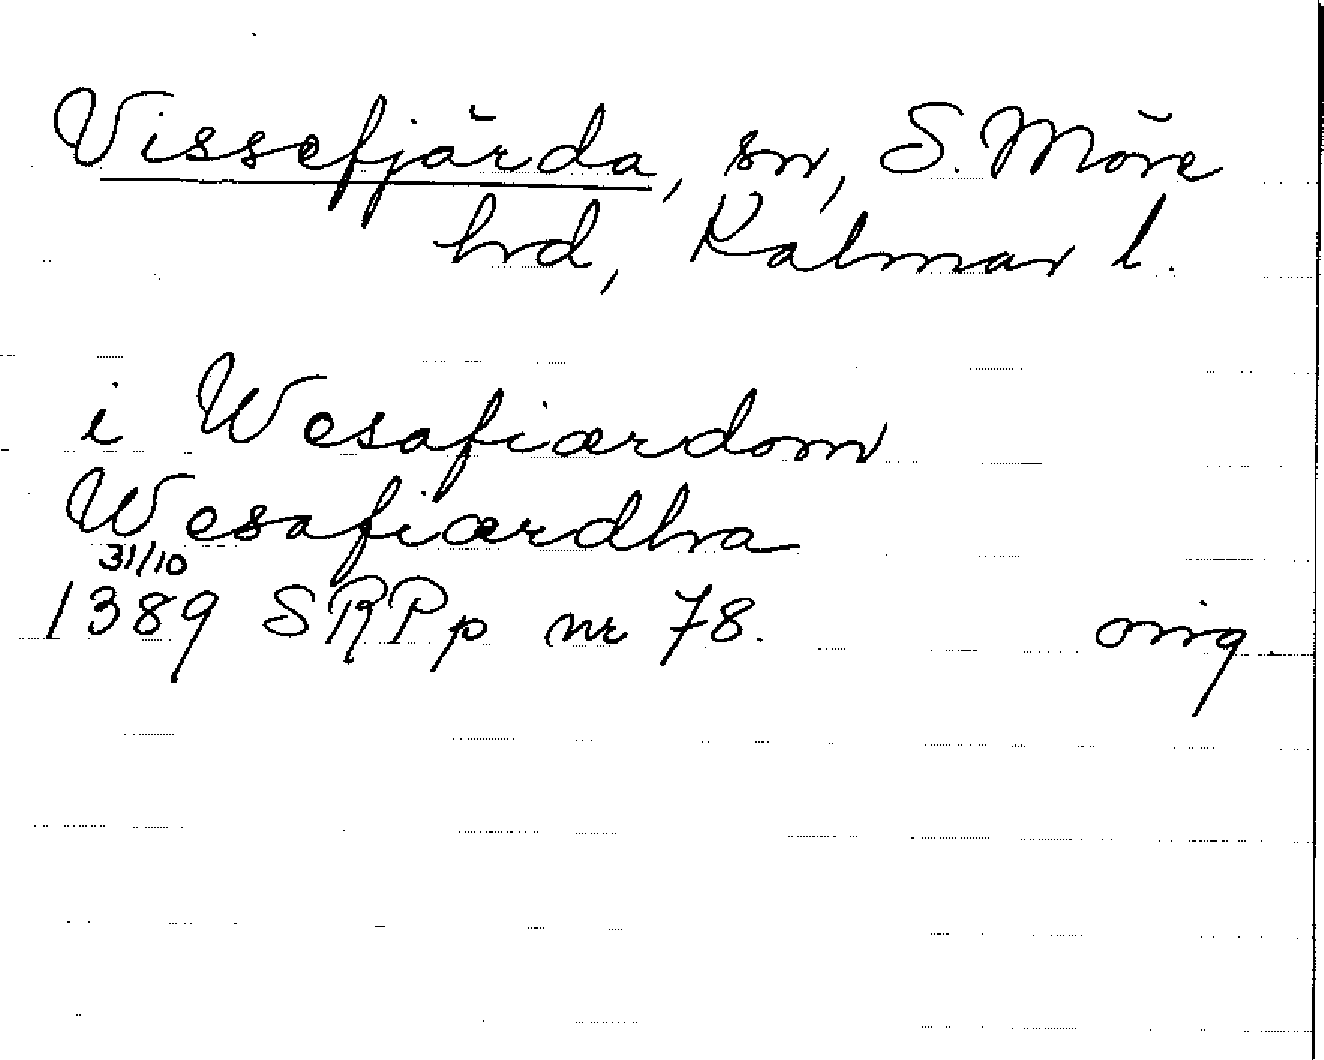 Vissefjärda, sn, S. Möre
hrd, Kalmar l.
i Wesafiærdom
Wesafiærdhra
31/10
1389 SRPp nr 78. orig.